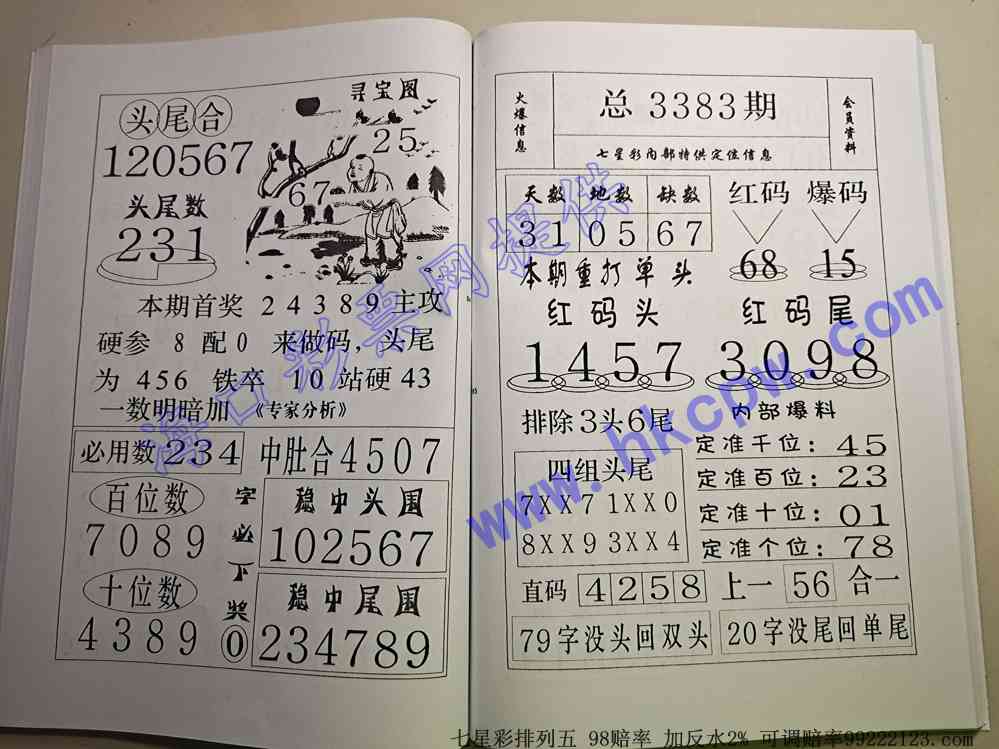 头尾合
120567
寻宝图
25
67
头尾数
231
本期首奖 2 4 3 8 9 主攻
硬参 8 配 0 来做码，头尾
为 456 铁卒 10 站硬 43
一数明暗加 《专家分析》
必用数 234
中肚合 4507
百位数
7089
字必下奖 0
稳中头围
102567
十位数
4389
稳中尾围
234789
火爆信息
总 3383 期
七星彩内部特供定位信息
会员资料
天数 地数 缺数
31 05 67
红码 爆码
68 15
本期重打单头
红码头 红码尾
1457 3098
排除3头6尾
内部爆料
四组头尾
7XX7 1XX0
8XX9 3XX4
定准千位：45
定准百位：23
定准十位：01
定准个位：78
直码 4258 上一 56 合一
79字没头回双头
20字没尾回单尾
海口彩票网提供
www.hkcpw.com
七星彩排列五 98赔率 加反水2% 可调赔率99222123.com